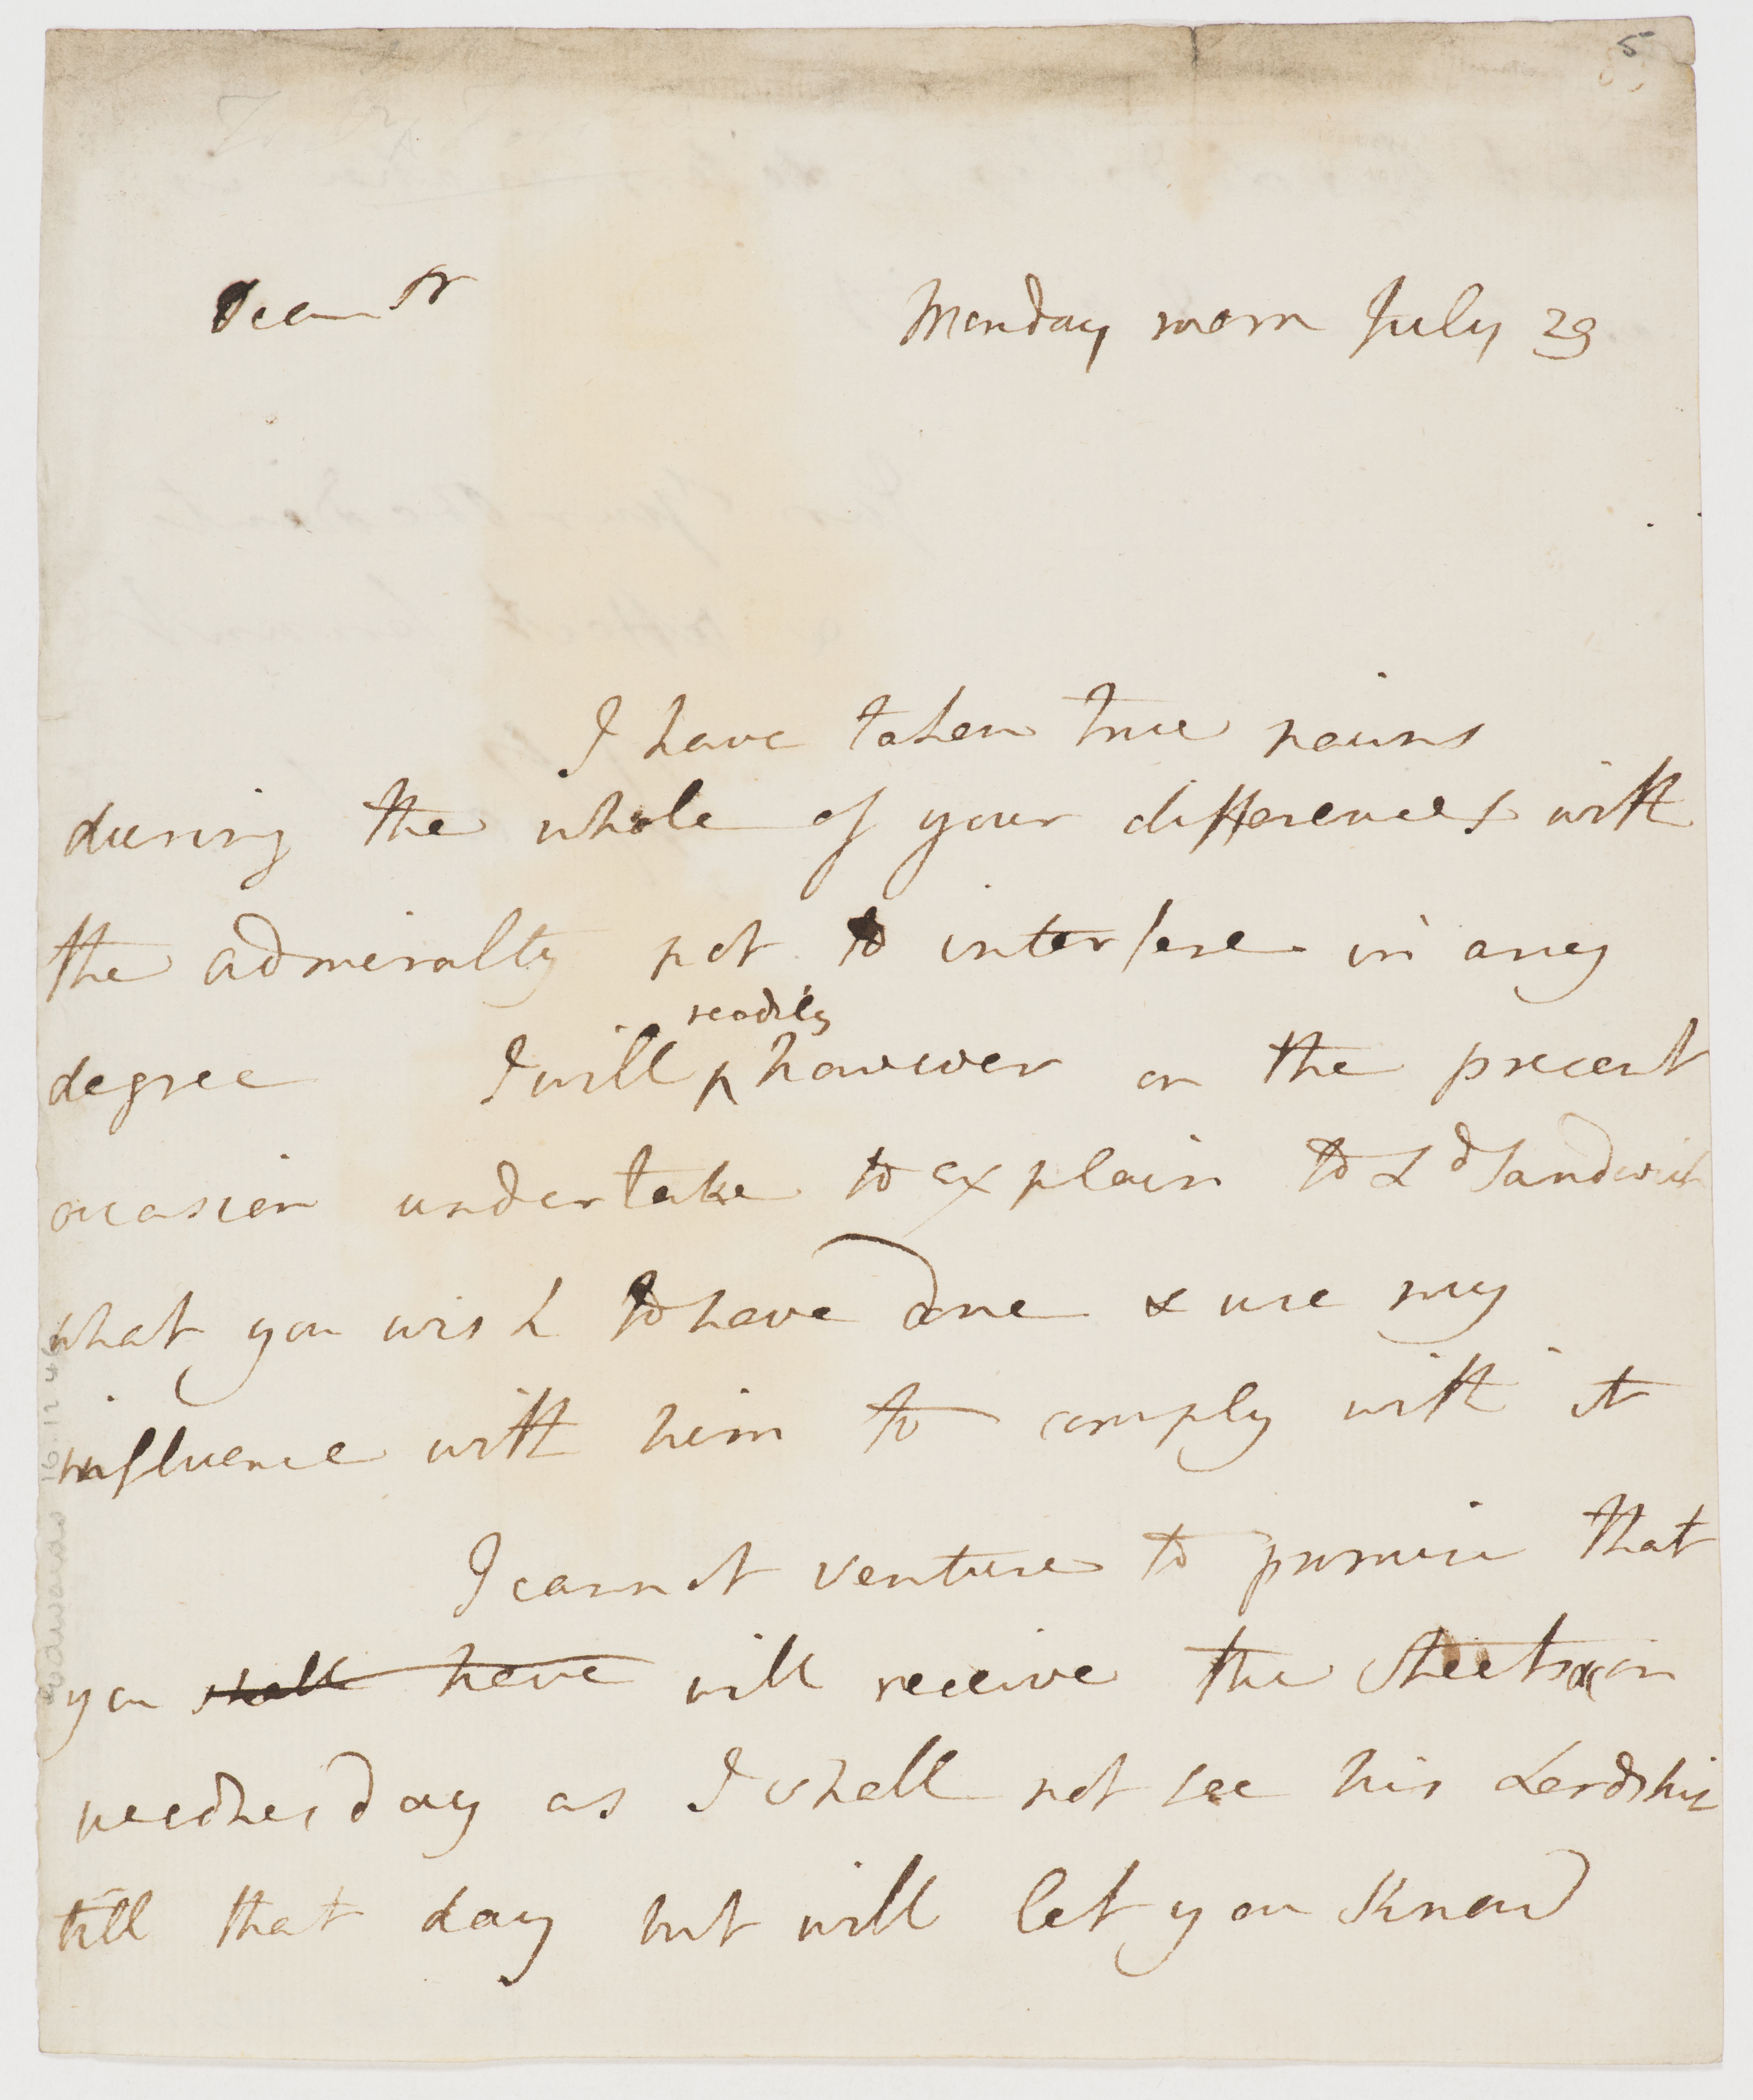 5
Dear Sr
Monday morn July 29
I have taken true pains
during the whole of your differences with
the admiralty not to interfere in any
readily
degree I will ^ however on the present
occasion undertake to explain to Ld Sandwich
what you wish to have done & use my
influence with him to comply with it
I cannot venture to promise that
you shall have will receive the sheets on
wednesday as I shall not see his Lordship
till that day but will let you know
Edwards 16.12.46